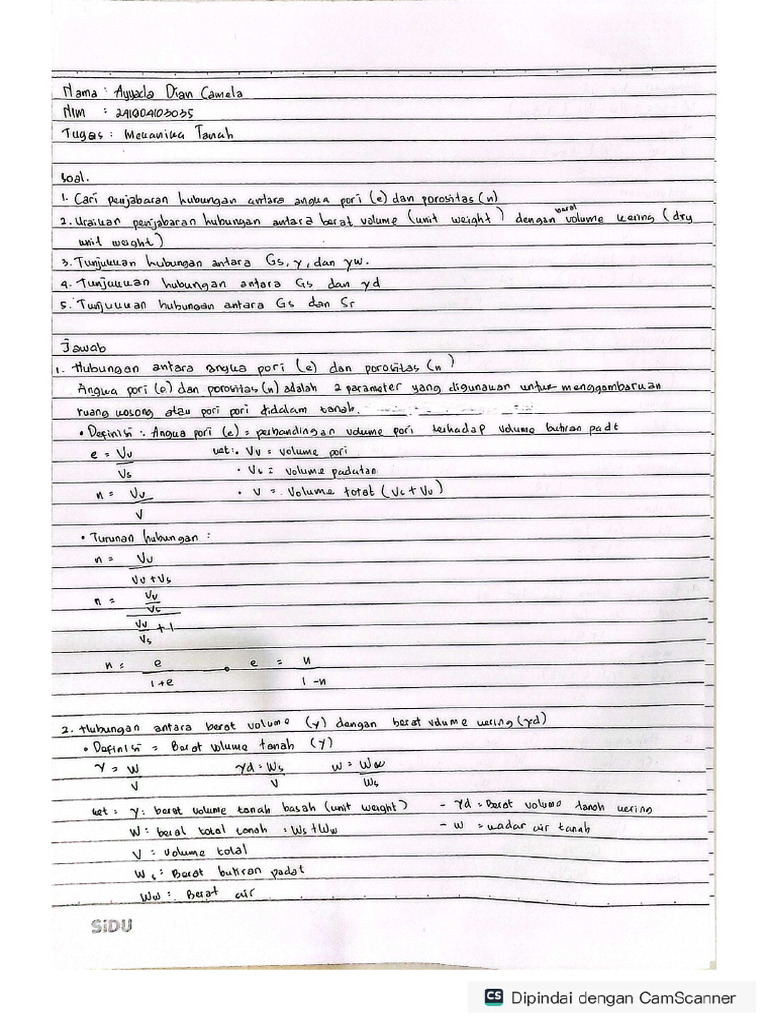 Nama : Ayyada Dian Camela
NIM : 241004103035
Tugas : Mekanika Tanah
Soal.
1. Cari penjabaran hubungan antara angka pori (e) dan porositas (n)
2. Uraikan penjabaran hubungan antara berat volume (unit weight) dengan berat volume kering (dry
unit weight)
3. Tunjukkan hubungan antara Gs, γ, dan γw.
4. Tunjukkan hubungan antara Gs dan γd
5. Tunjukkan hubungan antara Gs dan Sr
Jawab
1. Hubungan antara angka pori (e) dan porositas (n)
Angka pori (e) dan porositas (n) adalah 2 parameter yang digunakan untuk menggambarkan
ruang kosong atau pori pori didalam tanah.
• Definisi : Angka pori (e) = perbandingan volume pori terhadap volume butiran padt
e = Vv/Vs ket : • Vv = volume pori
• Vs = volume padatan
n = Vv/V • V = Volume total (Vs + Vv)
• Turunan hubungan :
n = Vv/(Vv + Vs)
n = (Vv/Vs)/(Vv/Vs + 1)
n = e/(1+e) • e = n/(1-n)
2. Hubungan antara berat volume (γ) dengan berat volume kering (γd)
• Definisi = Berat volume tanah (γ)
γ = W/V γd = Ws/V w = Ww/Ws
ket = γ : berat volume tanah basah (unit weight) - γd = Berat volume tanah kering
W : berat total tanah = Ws + Ww - w = kadar air tanah
V : Volume total
Ws : Berat butiran padat
Ww : Berat air
SiDU
CS Dipindai dengan CamScanner